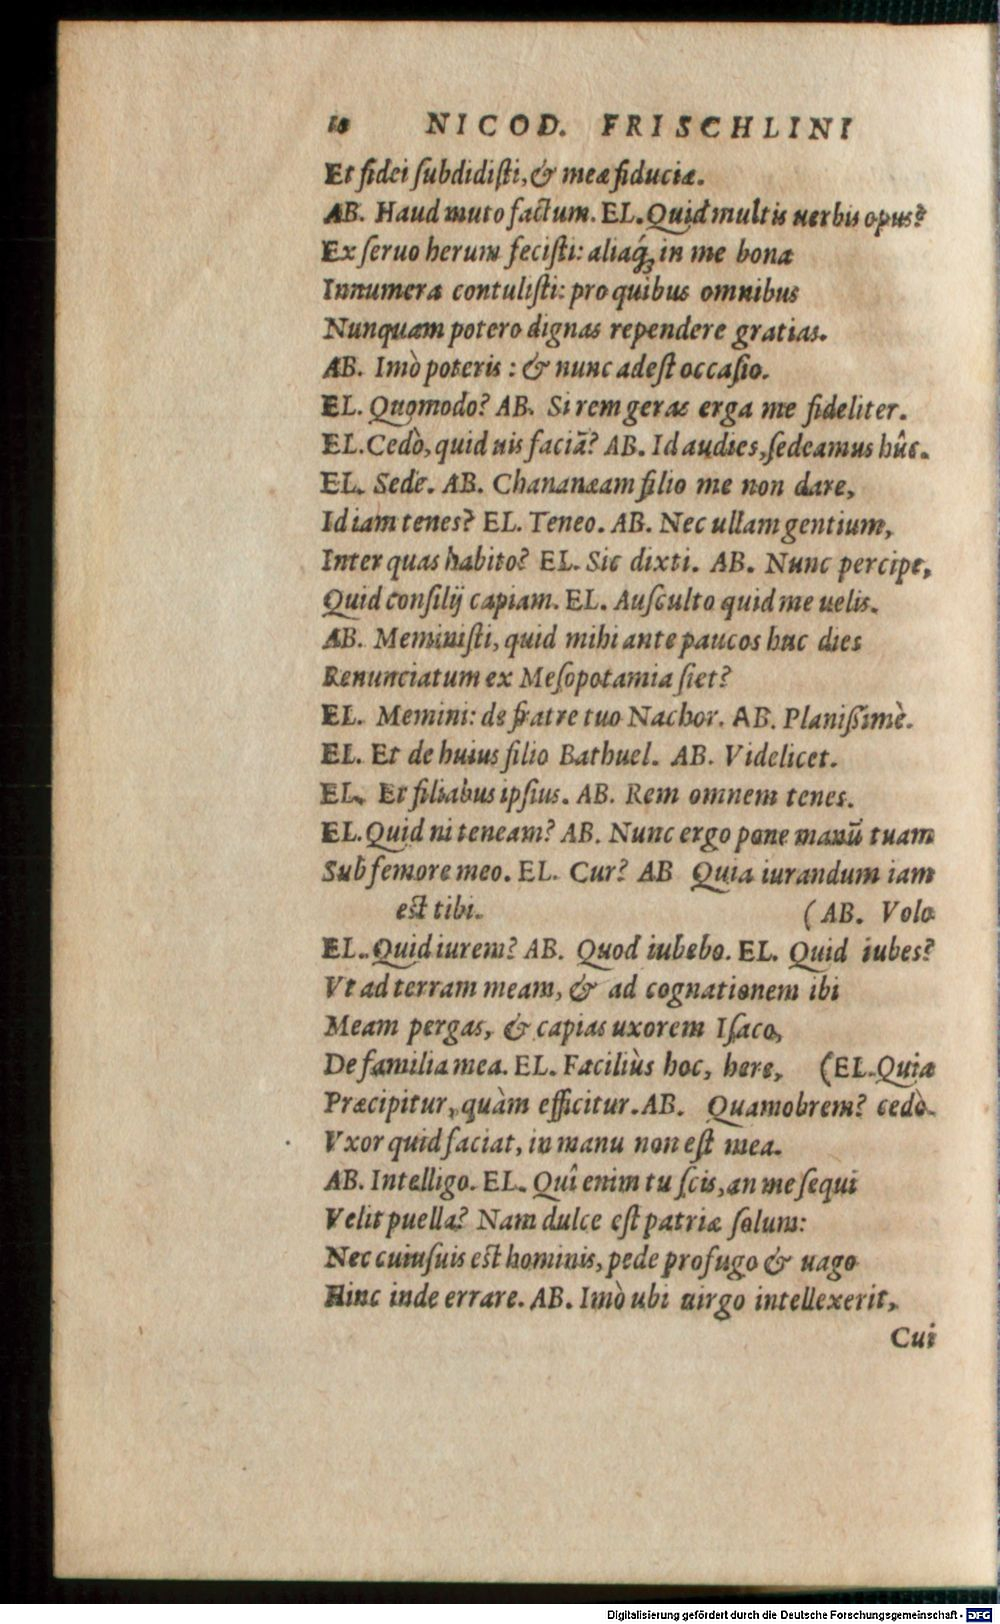 10 NICOD. FRISCHLINI
Et fidei ſubdidiſti, & meæ fiduciæ.
AB. Haud muto factum. EL. Quid multis uerbis opus?
Ex ſeruo herum feciſti: aliaq́; in me bona
Innumera contuliſti: pro quibus omnibus
Nunquam potero dignas rependere gratias.
AB. Imò poteris: & nunc adeſt occaſio.
EL. Quomodo? AB. Si rem geras erga me fideliter.
EL. Cedò, quid uis faciā? AB. Id audies, ſedeamus hûc.
EL. Sede. AB. Chananæam filio me non dare,
Id iam tenes? EL. Teneo. AB. Nec ullam gentium,
Inter quas habito? EL. Sic dixti. AB. Nunc percipe,
Quid conſilij capiam. EL. Auſculto quid me uelis.
AB. Meminiſti, quid mihi ante paucos huc dies
Renunciatum ex Meſopotamia ſiet?
EL. Memini: de fratre tuo Nachor. AB. Planiſſimè.
EL. Et de huius filio Bathuel. AB. Videlicet.
EL. Et filiabus ipſius. AB. Rem omnem tenes.
EL. Quid ni teneam? AB. Nunc ergo pone manū tuam
Sub femore meo. EL. Cur? AB Quia iurandum iam
est tibi. (AB. Volo
EL. Quid iurem? AB. Quod iubebo. EL. Quid iubes?
Vt ad terram meam, & ad cognationem ibi
Meam pergas, & capias uxorem Iſaco,
De familia mea. EL. Faciliùs hoc, here, (EL. Quia
Præcipitur, quàm efficitur. AB. Quamobrem? cedò.
Vxor quid faciat, in manu non eſt mea.
AB. Intelligo. EL. Quî enim tu ſcis, an me ſequi
Velit puella? Nam dulce eſt patriæ ſolum:
Nec cuiuſuis est hominis, pede profugo & uago
Hinc inde errare. AB. Imò ubi uirgo intellexerit,
Cui
Digitalisierung gefördert durch die Deutsche Forschungsgemeinschaft - DFG